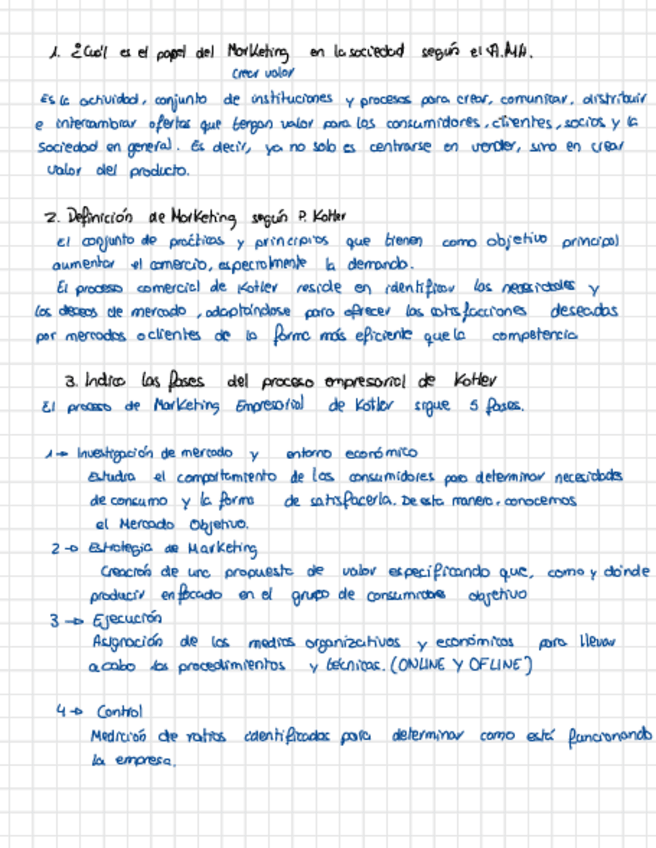 1. ¿Cuál es el papel del Marketing en la sociedad según el A.M.A.
crear valor
Es la actividad, conjunto de instituciones y procesos para crear, comunicar, distribuir
e intercambiar ofertas que tengan valor para los consumidores, clientes, socios y la
sociedad en general. Es decir, ya no solo es centrarse en vender, sino en crear
valor del producto.
2. Definición de Marketing según P. Kotler
El conjunto de prácticas y principios que tienen como objetivo principal
aumentar el comercio, especialmente la demanda.
El proceso comercial de Kotler reside en identificar las necesidades y
los deseos de mercado, adaptándose para ofrecer las satisfacciones deseadas
por mercados o clientes de la forma más eficiente que la competencia
3. Indica las fases del proceso empresarial de Kotler
El proceso de Marketing Empresarial de Kotler sigue 5 fases.
1→ Investigación de mercado y entorno económico
Estudia el comportamiento de los consumidores para determinar necesidades
de consumo y la forma de satisfacerla. De esta manera, conocemos
el Mercado Objetivo.
2→ Estrategia de Marketing
Creación de una propuesta de valor especificando que, como y dónde
producir enfocado en el grupo de consumidores objetivo
3→ Ejecución
Asignación de los medios organizativos y económicos para llevar
a cabo los procedimientos y técnicas. (ONLINE Y OFLINE)
4→ Control
Medición de ratios identificados para determinar como está funcionando
la empresa.